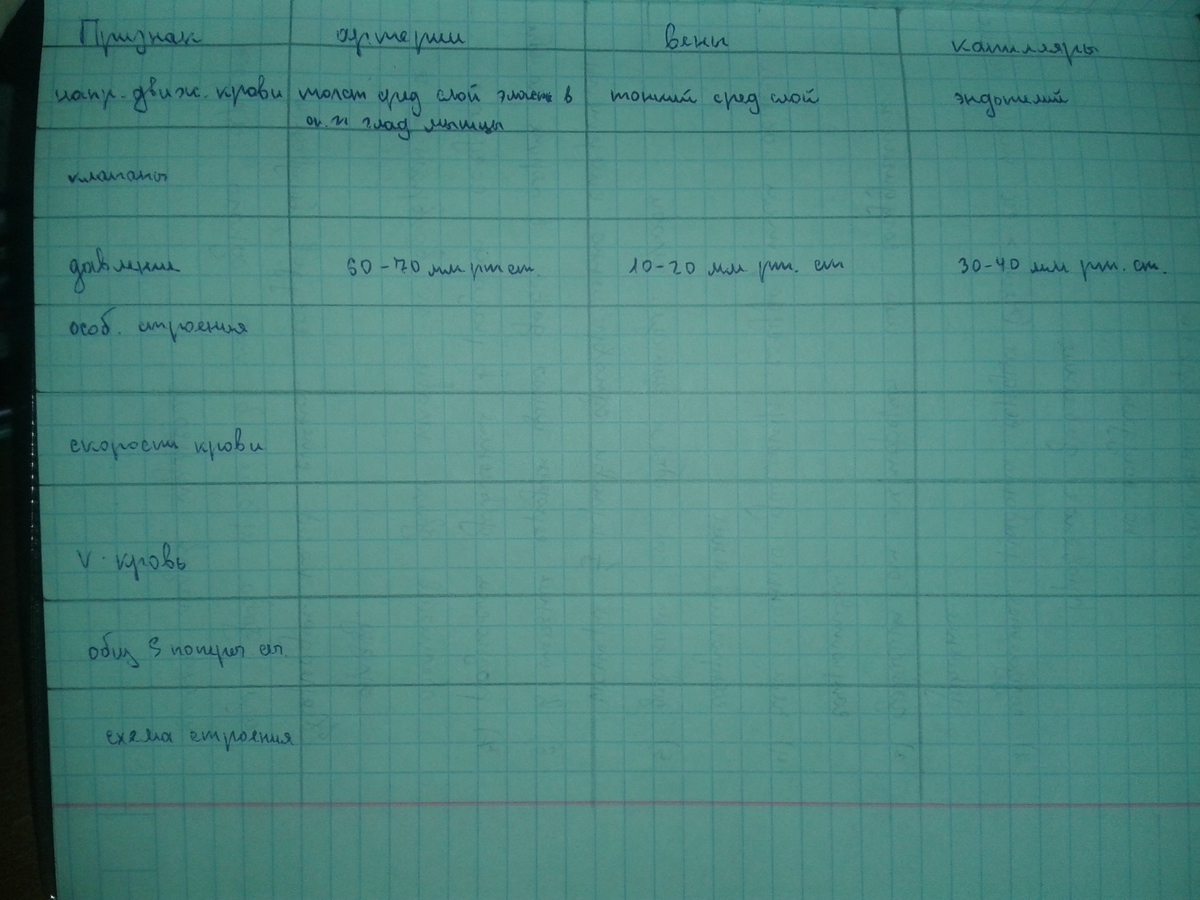 Признак артерии вены капилляры
напр. движ. крови толст сред слой эласт в тонкий сред слой эндотелий
и глад мышцы
клапаны
давление 60-70 мм рт ст. 10-20 мм рт. ст 30-40 мм рт. ст.
особ. строения
скорость крови
V кровь
общ S попереч
схема строения